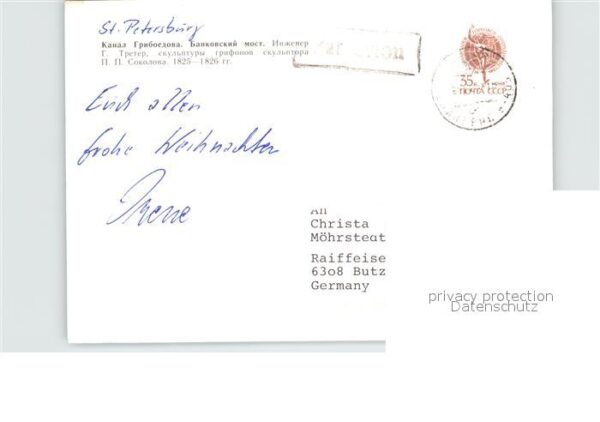 St. Petersburg
Канал Грибоедова. Банковский мост. Инженер
Г. Третер, скульптуры грифонов скульптора
П. П. Соколова. 1825—1826 гг.
par avion
35к
ПОЧТА СССР
Euch allen
frohe Weihnachten
Irene
An
Christa
Möhrstedt
Raiffeise
6308 Butz
Germany
privacy protection
Datenschutz